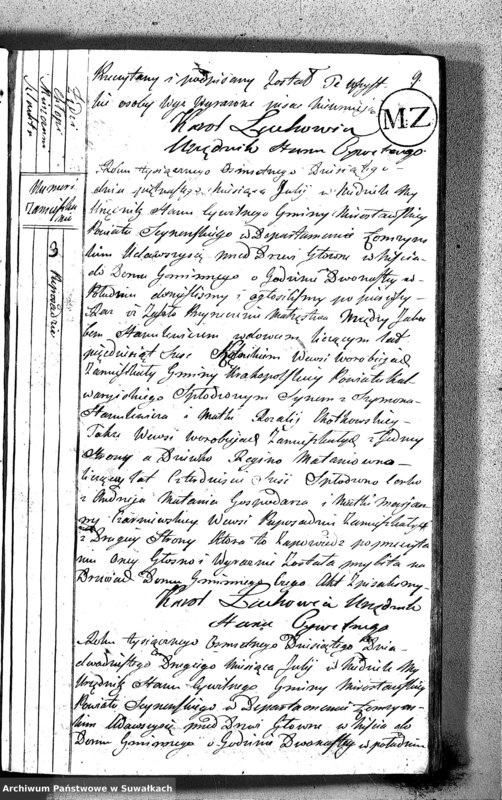 Przeczytany i podpisany został Te wszyst- 9.
kie osoby wyż wyrażone pisać nieumieją
MZ
Karol Zuchowicz
Urzędnik Stanu Cywilnego
Roku tysiącznego Osmsetnego Dziesiątego
dnia piętnastego miesiąca Julij w Niedziele My
Urzędnik Stanu Cywilnego Gminy
Powiatu Seynenskiego w Departamencie Łomżyns
kim Udawszysię przed Drzwi Główne w Niścia
do Domu Gminnego o Godzinie Dwonastey w
Południe donieśliśmy i ogłosiliśmy po pierwszy
Raz iż Zaszło Przyrzeczenie małżeństwa Między Jaku
bem Stankiewiczem wdowcem liczącym lat
pięćdziesiąt Sześć Rolnikiem we wsi
Zamieszkały Gminy Krakopolskiey Powiatu Kal
waryiskiego Spłodzonym Synem z Szymona
Stankiewicza i Matki Rozalij
Także we wsi Zamieszkałych z Jedney
Strony a Dziewką Reginą Mataniowną
liczącą lat Czterdzieści Sześć Spłodzoną córką
z Andrzeja Matania Gospodarza i Matki Maryan
ny we wsi Zamieszkałych
z Drugiey Strony Która to Zapowiedź po przeczyta
niu Oney Głośno i Wyraźnie Została przybita na
Drzwiach Domu Gminnego Czego Akt Spisaliśmy
Karol Zuchowicz Urzędnik
Stanu Cywilnego
Roku tysiącznego Osmsetnego Dziesiątego Dnia
dwudziestego Drugiego miesiąca Julij w Niedziele My
Urzędnik Stanu Cywilnego Gminy
Powiatu Seynenskiego w Departamencie Łomżyns
kim Udawszysię przed Drzwi Główne w Niścia do
Domu Gminnego o Godzinie Dwonastey w południe
Numera
Zamieszkania
Archiwum Państwowe w Suwałkach